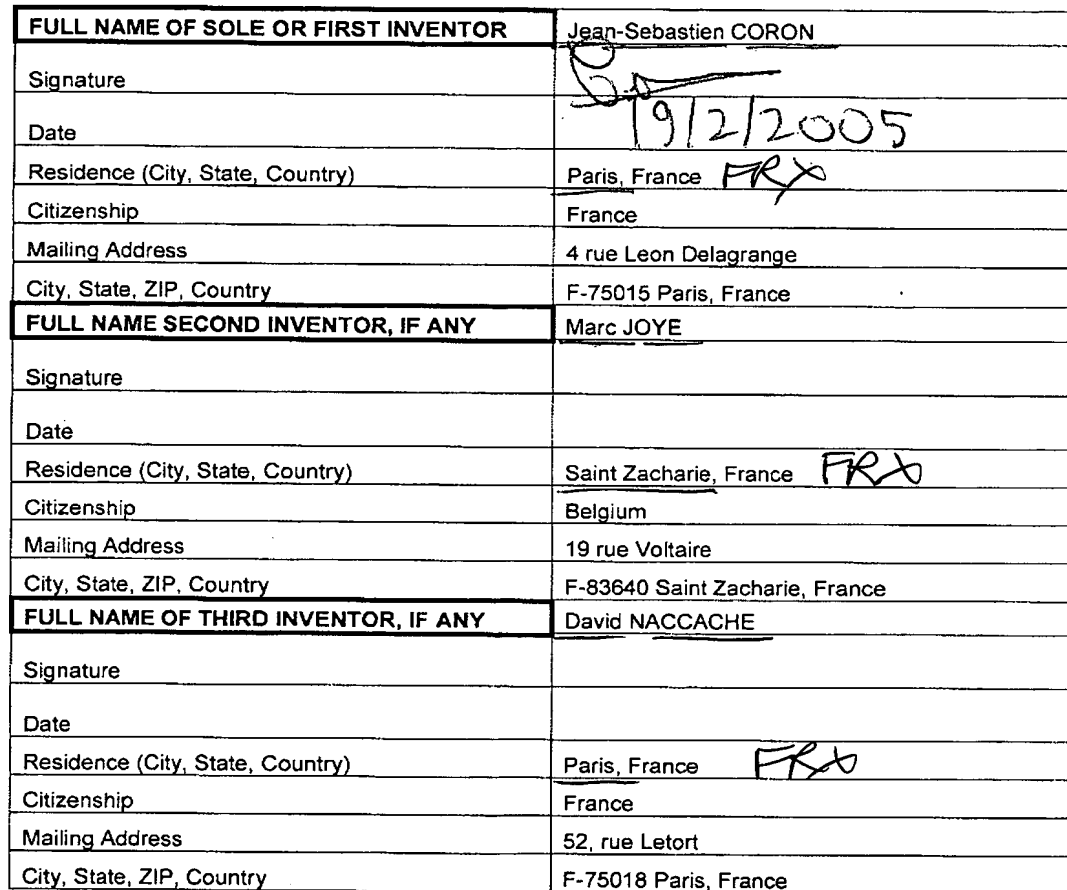 FULL NAME OF SOLE OR FIRST INVENTOR Jean-Sebastien CORON
Signature
Date 19/2/2005
Residence (City, State, Country) Paris, France FRX
Citizenship France
Mailing Address 4 rue Leon Delagrange
City, State, ZIP, Country F-75015 Paris, France
FULL NAME SECOND INVENTOR, IF ANY Marc JOYE
Signature
Date
Residence (City, State, Country) Saint Zacharie, France FRX
Citizenship Belgium
Mailing Address 19 rue Voltaire
City, State, ZIP, Country F-83640 Saint Zacharie, France
FULL NAME OF THIRD INVENTOR, IF ANY David NACCACHE
Signature
Date
Residence (City, State, Country) Paris, France FRX
Citizenship France
Mailing Address 52, rue Letort
City, State, ZIP, Country F-75018 Paris, France